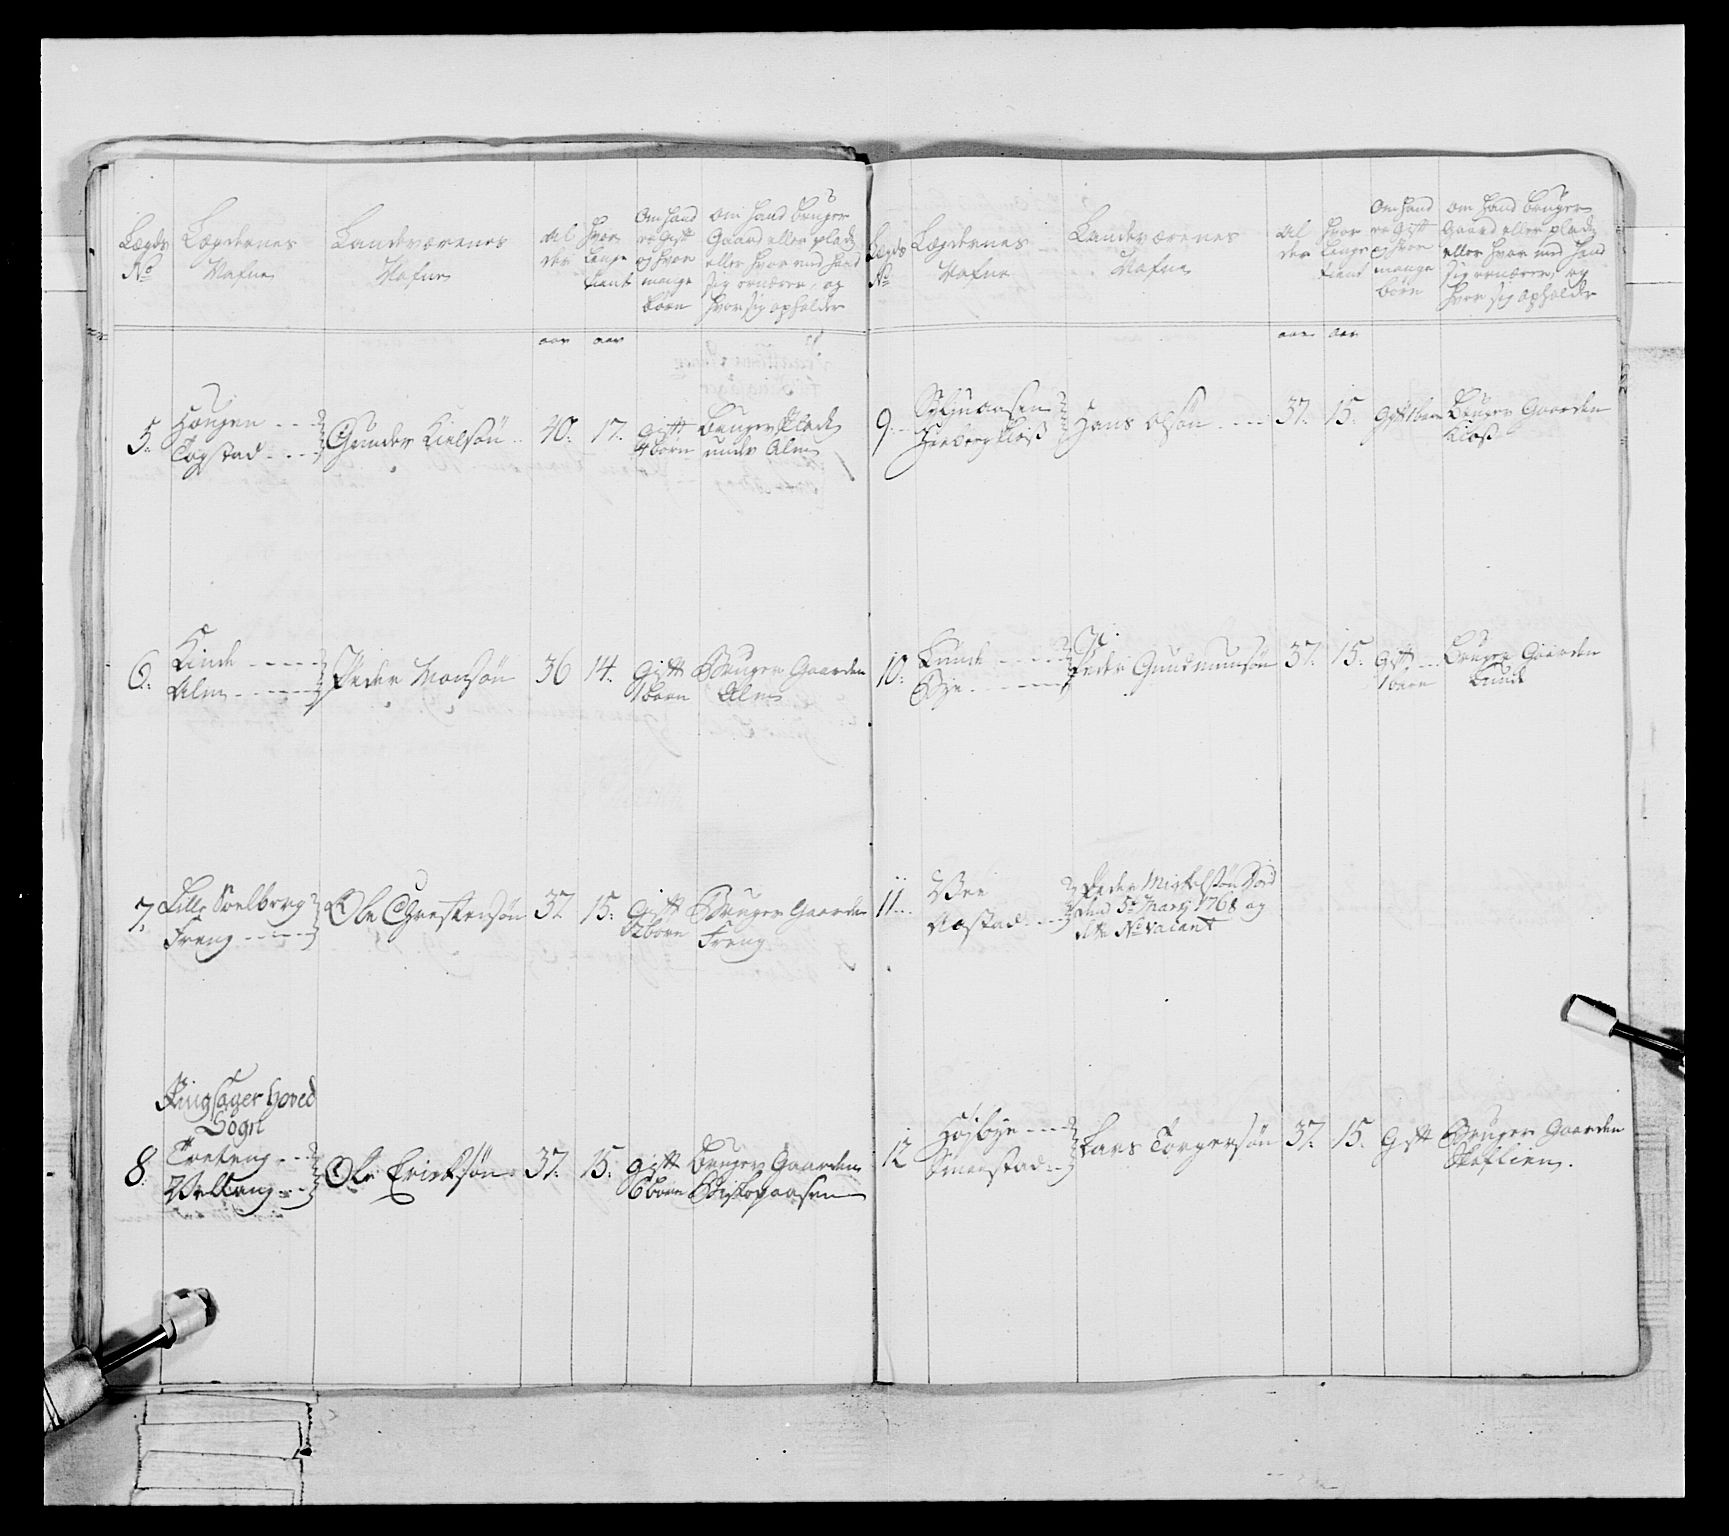 Legds
No
Legdernes
Nafne
Landeværenes
Nafne
Al
der
Hvor
Lenge
tient
Om hand
er Gift
og hvor
mange
børn
Om hand bruger
Gaard eller plads
eller hvor med hand
sig ernærer, og
hvor sig opholder
aar aar
5.
Haugen
Togstad
Gunder Kielsøn
40. 17.
Gift
4 børn
Bruger Plads
under Alm
6.
Kinde
Alm
Peder Monsøn
36 14.
Gift
1 barn
Bruger Gaarden
Alm
7.
Lille Soelberg
Freng
Ole Christensøn
37 15.
Gift
2 børn
Bruger Gaarden
Freng
Ringsager Hoved
Sogn
8.
Treteng
Veltang
Ole Ericksøn
37. 15.
Gift
6 børn
Bruger Gaarden
Biskopaasen
Legds
No
Legdernes
Nafne
Landeværenes
Nafne
Al
der
Hvor
Lenge
tient
Om hand
er Gift
og hvor
mange
børn
Om hand bruger
Gaard eller plads
eller hvor med hand
sig ernærer, og
hvor sig opholder
aar aar
9.
Hans Olsøn
37. 15.
Gift 1 barn
Bruger Gaarden
Kloß
10.
Lunde
Bye
Peder Gudmunsøn
37. 15.
Gift
1 barn
Bruger Gaarden
Lunde
11.
Aastad
Peder Mickelsøn Død
den 5te Marty 1768 og
No vacant
12
Højbye
Smestad
Lars Torgersøn
37. 15.
Gift
Bruger Gaarden